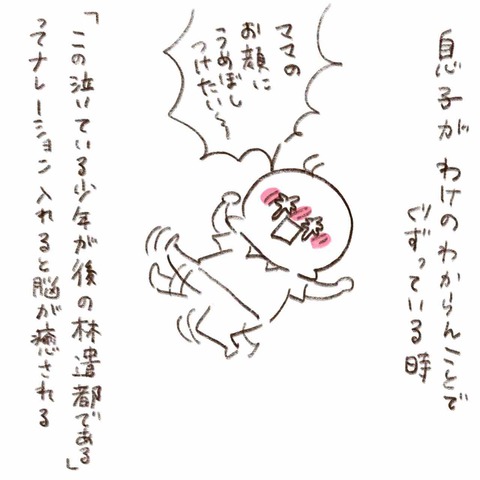 息子がわけのわからんことで
ぐずっている時
ママの
お顔に
うめぼし
つけたい〜
「この泣いている少年が後の林遣都である」
ってナレーション入れると脳が癒される